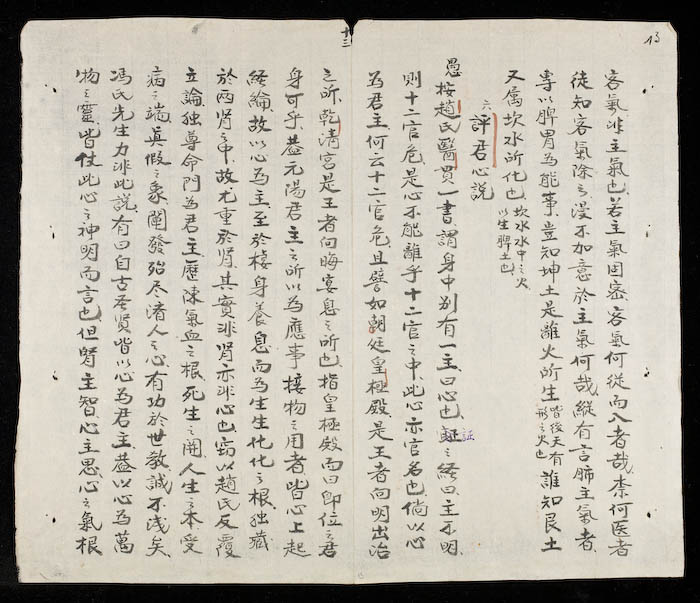 13
客氣非主氣也若主氣固密客氣何從而入者哉柰何医者
徒知客氣除之漫不加意於主氣何哉縱有言肺主氣者
專以脾胃為能事豈知坤土是離火所生皆後天有形之火也誰知艮土
又属坎水所化也坎水水中之火以生脾土也
六評君心說
愚按趙氏醫貫一書謂身中别有一主曰心也証之経曰主不明
証
則十二官危是心不能離乎十二官之中此心亦官名也倘以心
為君主何云十二官危且譬如朝廷皇極殿是王者向明出治
十三
之所乾清宮是王者向晦宴息之所也指皇極殿而曰即位之君
身可乎蓋元陽君主之所以為應事接物之用者皆心上起
経綸故以心為主至於棲身養息而為生生化化之根独藏
於两肾之中故尤重於肾其實非肾亦非心也窃以趙氏反覆
立論独尊命門為君主歷陳氣血之根死生之関人生之本受
病之端真假之象闡發殆尽済人之心有功於世教誠不浅矣
馮氏先生力非此說有曰自古圣贤皆以心為君主蓋以心為萬
物之靈皆仗此心之神明而言也但肾主智心主思心之氣根